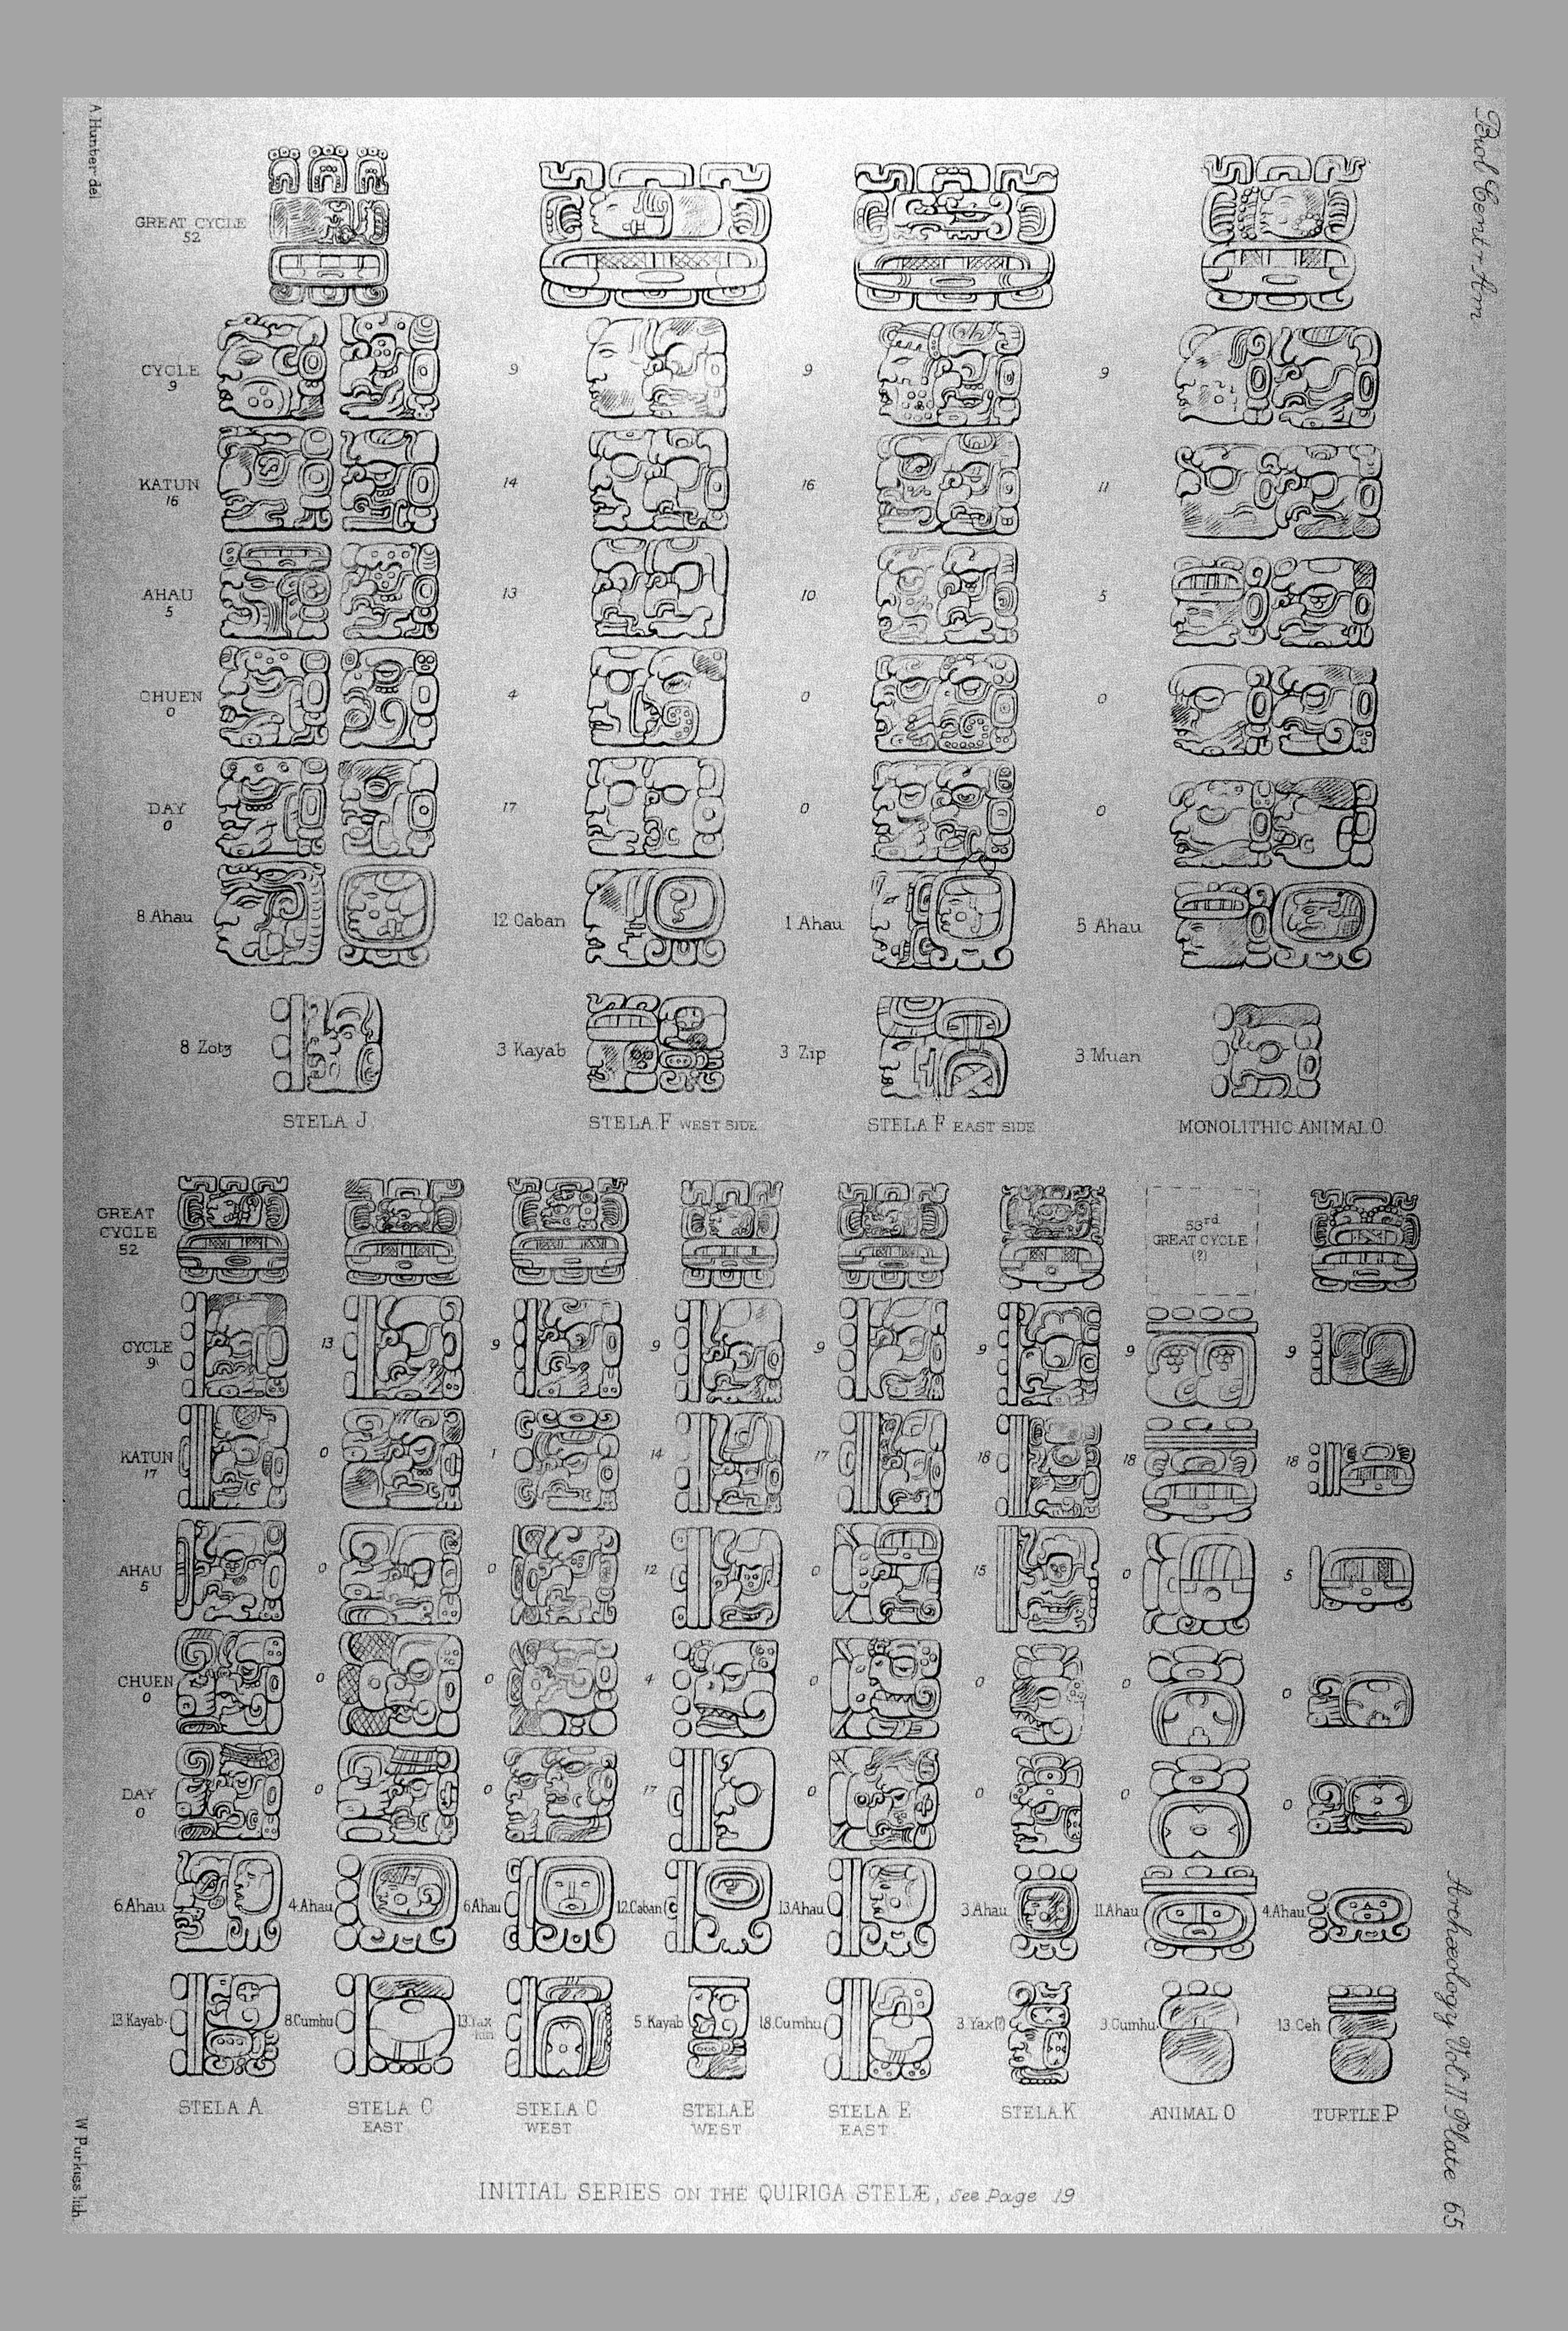 A Hunter del
Biol Centr Am
GREAT CYCLE
52
CYCLE
9
9
9
9
KATUN
16
14
16
11
AHAU
5
13
10
5
CHUEN
0
4
0
0
DAY
0
17
0
0
8 Ahau
12 Caban
1 Ahau
5 Ahau
8 Zotz
3 Kayab
3 Zip
3 Muan
STELA J
STELA F WEST SIDE
STELA F EAST SIDE
MONOLITHIC ANIMAL O.
GREAT
CYCLE
52
53rd
GREAT CYCLE
(?)
CYCLE
9
13
9
9
9
9
9
9
KATUN
17
0
1
14
17
18
18
18
AHAU
5
0
0
12
0
15
0
5
CHUEN
0
0
0
4
0
0
0
0
DAY
0
0
0
17
0
0
0
0
6 Ahau
4 Ahau
6 Ahau
12 Caban
13 Ahau
3 Ahau
11 Ahau
4 Ahau
13 Kayab
8 Cumhu
13 Yax
kin
5 Kayab
18 Cumhu
3 Yax(?)
3 Cumhu
13 Ceh
STELA A
STELA C
EAST
STELA C
WEST
STELA E
WEST
STELA E
EAST
STELA K
ANIMAL O
TURTLE P
INITIAL SERIES ON THE QUIRIGA STELÆ, See Page 19
W Purkiss lith.
Archæology Vol. II Plate 65